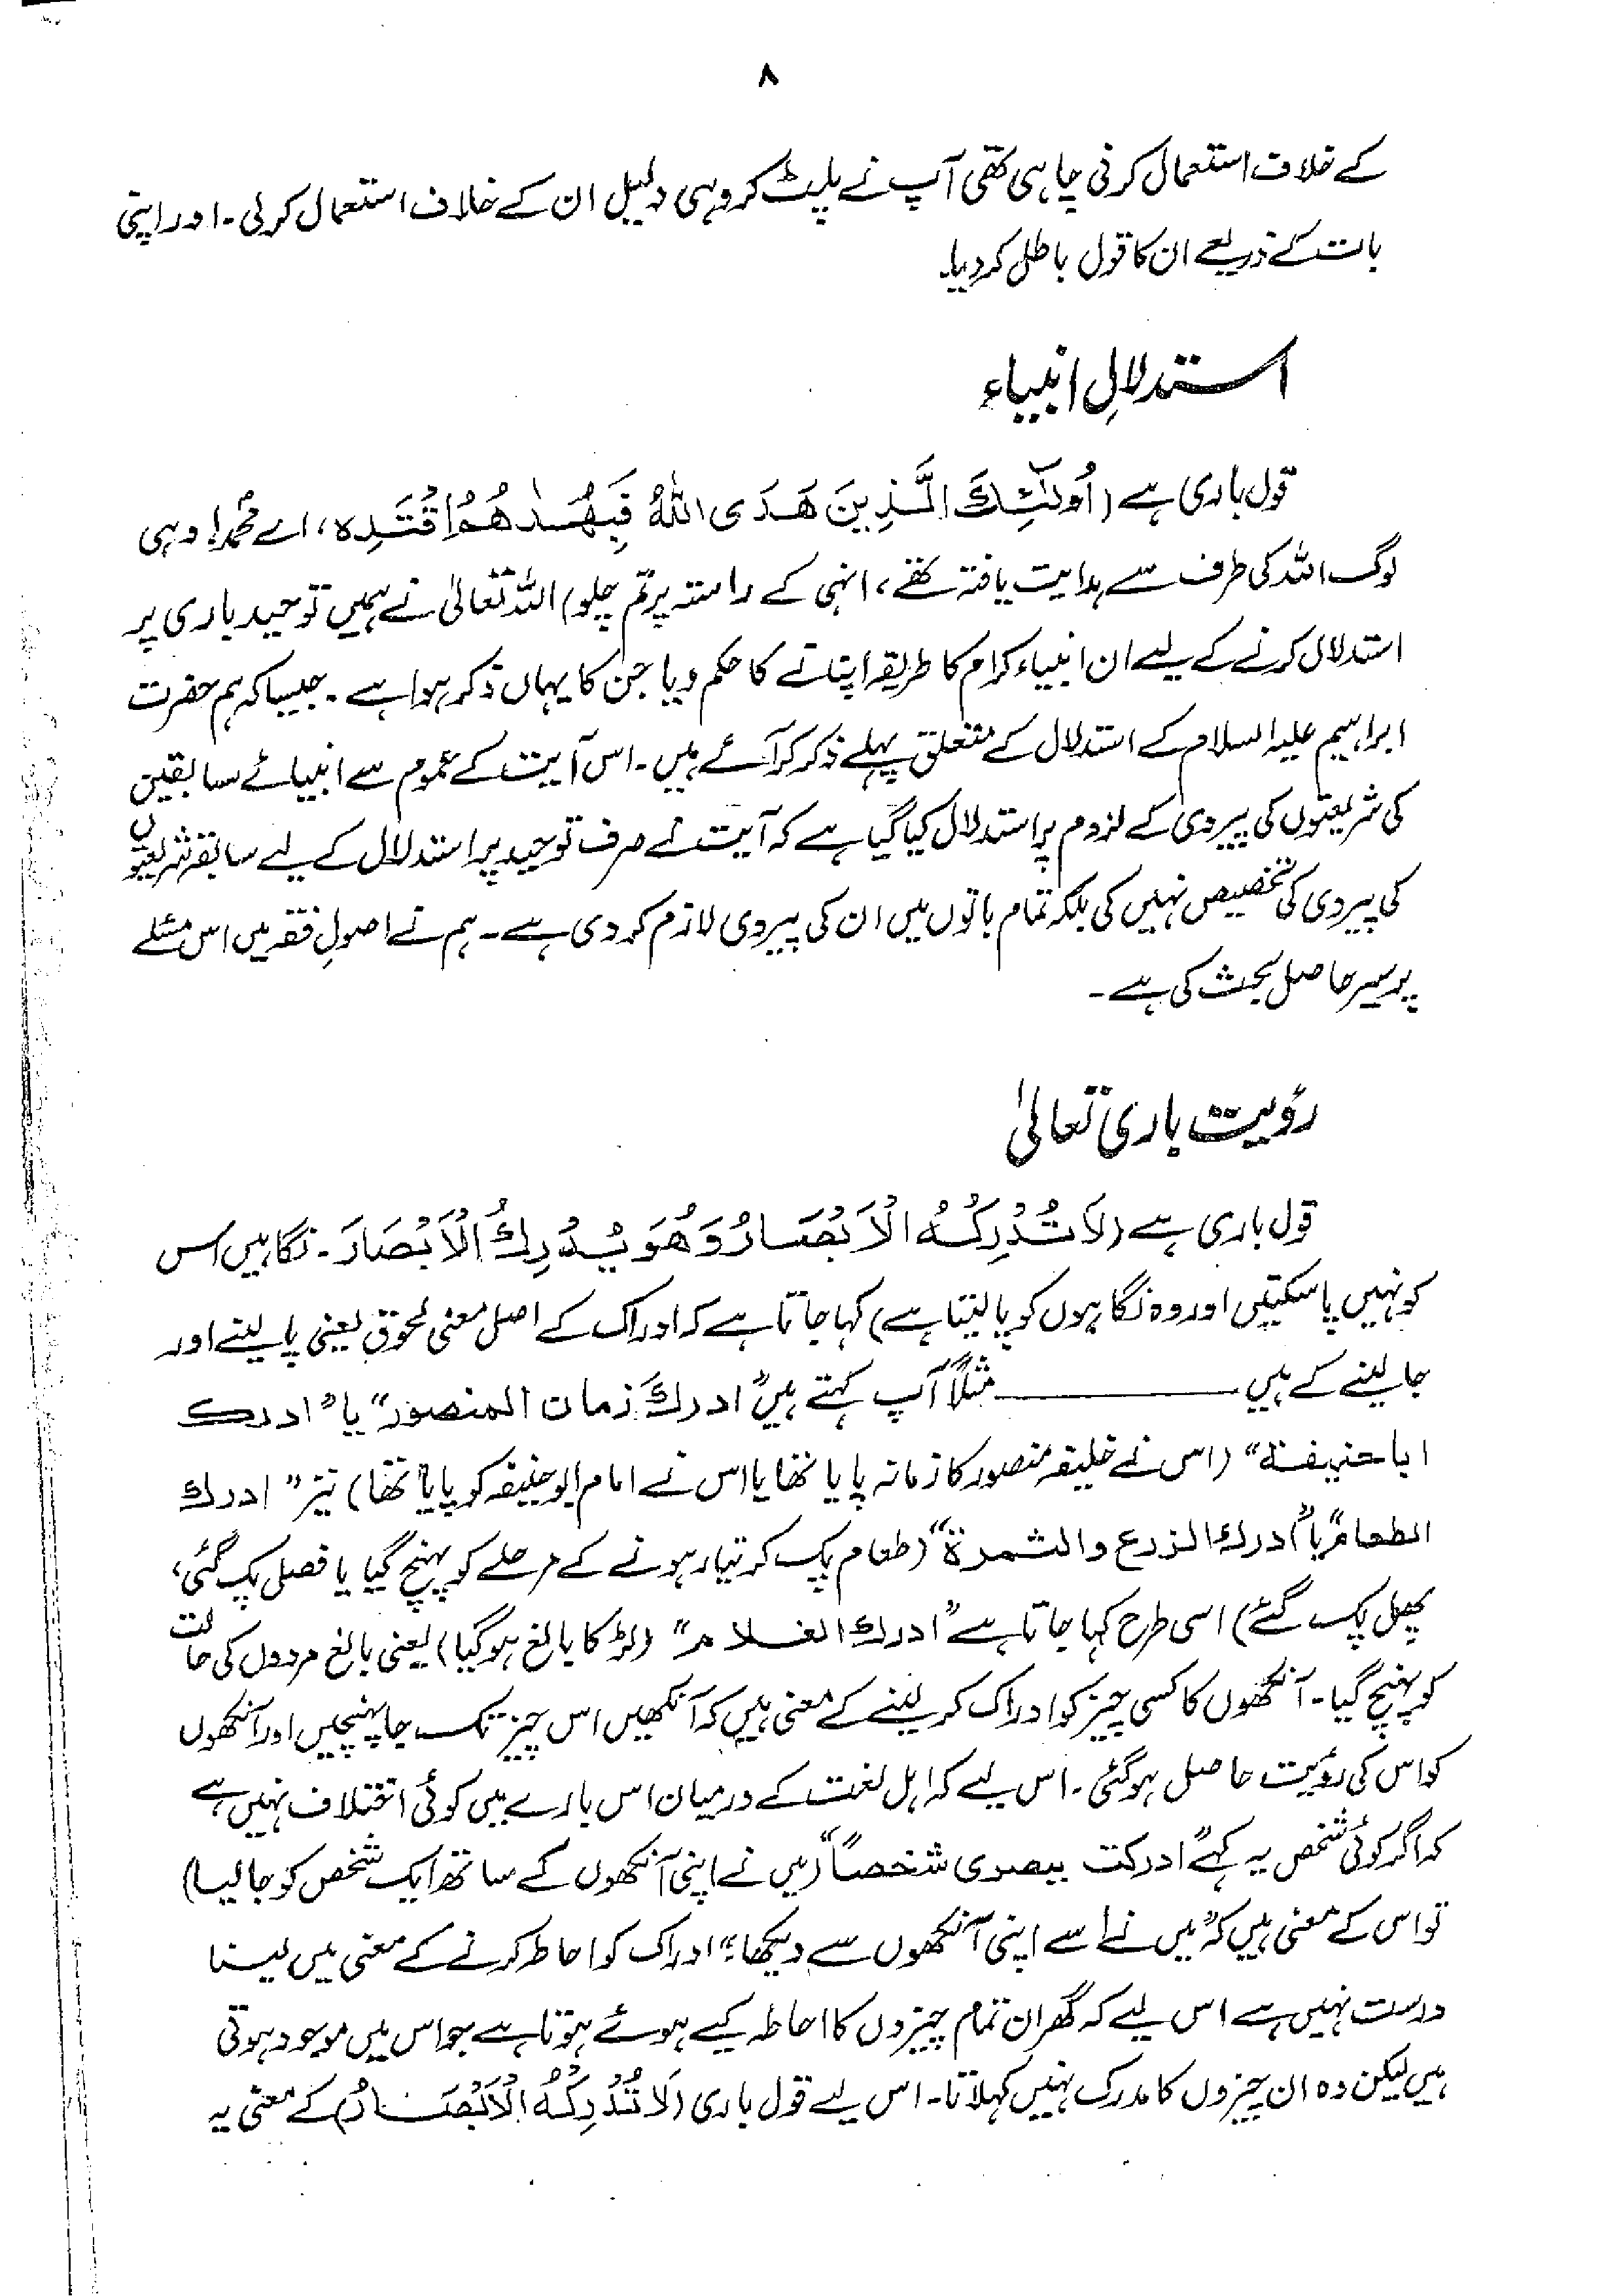 ۸
کے خلاف استعمال کرنی چاہی تھی آپ نے پلٹ کر وہی دلیل ان کے خلاف استعمال کر لی۔ اور اپنی
بات کے ذریعے ان کا قول باطل کر دیا۔
استدلالِ انبیاء
قول باری ہے (اُولٰٓئِكَ الَّذِينَ هَدَى اللهُ فَبِهُدٰهُمُ اقْتَدِه، اے محمدؐ! وہی
لوگ اللہ کی طرف سے ہدایت یافتہ تھے، انہی کے راستہ پر تم چلو) اللہ تعالیٰ نے ہمیں توحید باری پر
استدلال کرنے کے لیے ان انبیاء کرام کا طریقہ اپنانے کا حکم دیا جن کا یہاں ذکر ہوا ہے۔ جیسا کہ ہم حضرت
ابراہیم علیہ السلام کے استدلال کے متعلق پہلے ذکر کر آئے ہیں۔ اس آیت کے عموم سے انبیائے سابقین
کی شریعتوں کی پیروی کے لزوم پر استدلال کیا گیا ہے کہ آیت نے صرف توحید پر استدلال کے لیے سابقہ شریعتوں
کی پیروی کی تخصیص نہیں کی بلکہ تمام باتوں میں ان کی پیروی لازم کر دی ہے۔ ہم نے اصولِ فقہ میں اس مسئلے
پر سیر حاصل بحث کی ہے۔
رؤیت باری تعالیٰ
قول باری ہے (لَا تُدْرِكُهُ الْاَبْصَارُ وَهُوَ يُدْرِكُ الْاَبْصَارَ۔ نگاہیں اس
کو نہیں پا سکتیں اور وہ نگاہوں کو پا لیتا ہے) کہا جاتا ہے کہ ادراک کے اصل معنی لحوق یعنی پا لینے اور
جا لینے کے ہیں ـــــــــــ مثلاً آپ کہتے ہیں "ادرك زمان المنصور" یا "ادرك
ابا حنيفة" (اس نے خلیفہ منصور کا زمانہ پایا تھا یا اس نے امام ابو حنیفہ کو پایا تھا) نیز "ادرك
الطعام" یا "ادرك الزرع والثمرة" (طعام پک کر تیار ہونے کے مرحلے کو پہنچ گیا یا فصل پک گئی،
پھل پک گئے) اسی طرح کہا جاتا ہے "ادرك الغلام" (لڑکا بالغ ہو گیا) یعنی بالغ مردوں کی حالت
کو پہنچ گیا۔ آنکھوں کا کسی چیز کو ادراک کر لینے کے معنی ہیں کہ آنکھیں اس چیز تک جا پہنچیں اور آنکھوں
کو اس کی رؤیت حاصل ہو گئی۔ اس لیے کہ اہل لغت کے درمیان اس بارے میں کوئی اختلاف نہیں ہے
کہ اگر کوئی شخص یہ کہے "ادركت ببصری شخصاً" (میں نے اپنی آنکھوں کے ساتھ ایک شخص کو جا لیا)
تو اس کے معنی ہیں کہ "میں نے اسے اپنی آنکھوں سے دیکھا" ادراک کو احاطہ کرنے کے معنی میں لینا
درست نہیں ہے اس لیے کہ گھر ان تمام چیزوں کا احاطہ کیے ہوئے ہوتا ہے جو اس میں موجود ہوتی
ہیں لیکن وہ ان چیزوں کا مدرک نہیں کہلاتا۔ اس لیے قول باری (لَا تُدْرِكُهُ الْاَبْصَارُ) کے معنی یہ